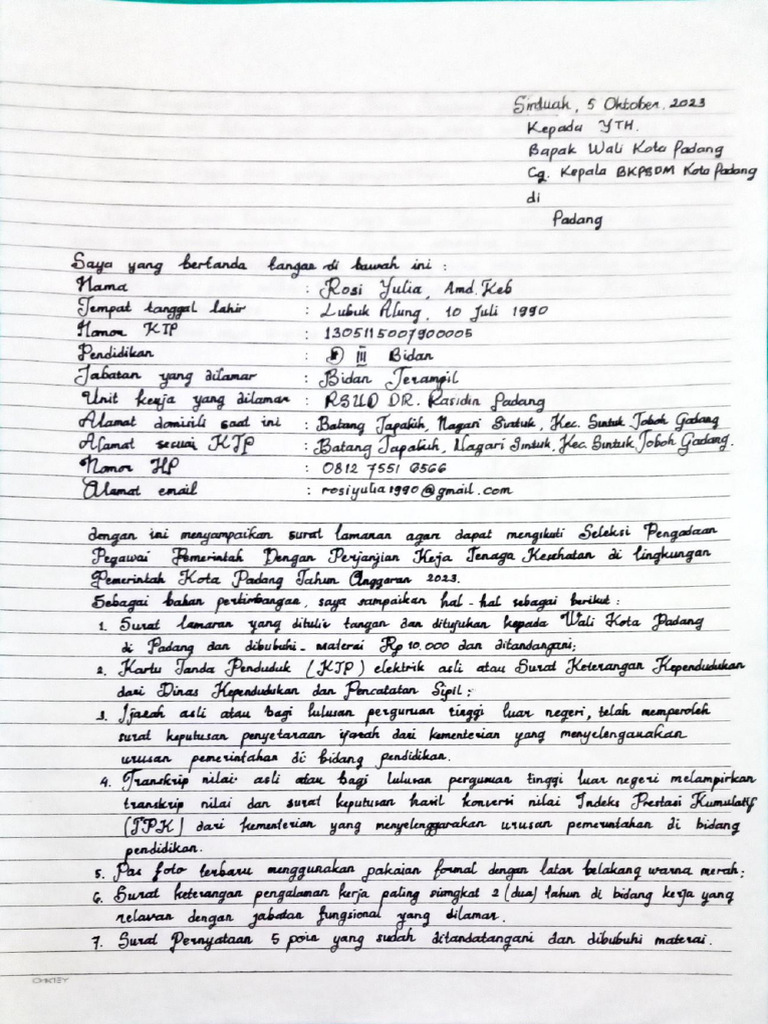 Sintuak, 5 Oktober, 2023
Kepada YTH.
Bapak Wali Kota Padang
Cq. Kepala BKPSDM Kota Padang
di
Padang
Saya yang bertanda tangan di bawah ini :
Nama : Rosi Yulia, Amd.Keb
Tempat tanggal lahir : Lubuk Alung, 10 Juli 1990
Nomor KTP : 1305115007900005
Pendidikan : D III Bidan
Jabatan yang dilamar : Bidan Terampil
Unit kerja yang dilamar : RSUD DR. Rasidin Padang
Alamat domisili saat ini : Batang Tapakih, Nagari Sintuk, Kec. Sintuk Toboh Gadang
Alamat sesuai KTP : Batang Tapakih, Nagari Sintuk, Kec. Sintuk Toboh Gadang.
Nomor HP : 0812 7551 6566
Alamat email : rosiyulia1990@gmail.com
dengan ini menyampaikan surat lamaran agar dapat mengikuti Seleksi Pengadaan
Pegawai Pemerintah Dengan Perjanjian Kerja Tenaga Kesehatan di lingkungan
Pemerintah Kota Padang Tahun Anggaran 2023.
Sebagai bahan pertimbangan, saya sampaikan hal-hal sebagai berikut :
1. Surat lamaran yang ditulis tangan dan ditujukan kepada Wali Kota Padang
di Padang dan dibubuhi materai Rp 10.000 dan ditandangani;
2. Kartu Tanda Penduduk (KTP) elektrik asli atau Surat Keterangan Kependudukan
dari Dinas Kependudukan dan Pencatatan Sipil;
3. Ijasah asli atau bagi lulusan perguruan tinggi luar negeri, telah memperoleh
surat keputusan penyetaraan ijasah dari kementerian yang menyelengarakan
urusan pemerintahan di bidang pendidikan.
4. Transkrip nilai asli atau bagi lulusan perguruan tinggi luar negeri melampirkan
transkrip nilai dan surat keputusan hasil konversi nilai Indeks Prestasi Kumulatif
(IPK) dari kementerian yang menyelenggarakan urusan pemerintahan di bidang
pendidikan.
5. Pas foto terbaru menggunakan pakaian formal dengan latar belakang warna merah;
6. Surat keterangan pengalaman kerja paling singkat 2 (dua) tahun di bidang kerja yang
relavan dengan jabatan fungsional yang dilamar.
7. Surat Pernyataan 5 poin yang sudah ditandatangani dan dibubuhi materai.